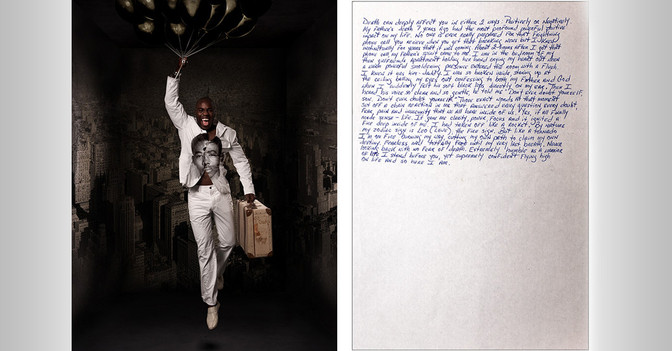 Death can deeply affect you in either 2 ways. Positively or Negatively.
My Father's Death 7 years ago had the most profound positive
impact on my life. No one is ever really prepared for that
phone call you receive when you get that breaking news but I knew
instinctually for years that it was coming. About 2 hours after I got that
phone call my Father's spirit came to me. I was in the bedroom of my
then girlfriends apartment balling like hound crying my heart out when
a warm powerful presence entered the room with a Flash
I knew it was him - daddy. I was so looking up at
the ceiling balling my eyes out confessing to both my Father and God
when I suddenly felt his soft black lips directly on my ear. Then I
heard his voice so clear and so gentle, he told me "Don't ever doubt yourself,
son. Don't ever doubt yourself." Those exact words at that moment
set off a chain reaction in me that answered every question every doubt,
fear, pain and insecurity that is all made of us. Yes, it all finally
made sense - life. It gave me clarity, power, focus and it ignited a
fire deep inside of me. I had taken off like a rocket. By nature
my zodiac sign is Leo (Love) the fire sign. But like a
I'm on Fire burning my way, cutting my own path to claim my own
destiny. Fearless until my very last breath. Never
looking back with no fear of death. Extremely humble as a
as I stand before you, yet supremely confident flying high
on life and so here I am.